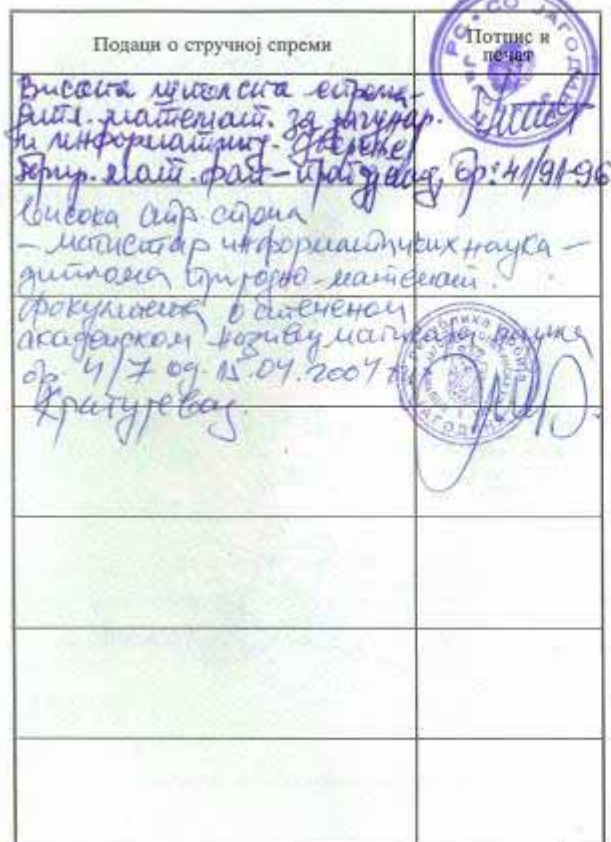 Подаци о стручној спреми
Потпис и
печат
РС • СО ЈАГОДИНА
Висока
дипл. математ. за рачунар.
и информатику
Прир. мат. фак - Крагујевац, бр: 41/91-96
Висока стр. спрема
- магистар информатичких наука -
диплома природно-математ.
факултета о стеченом
академском називу магистра наука
бр. 4/7 од 15.04.2004
Крагујевац.